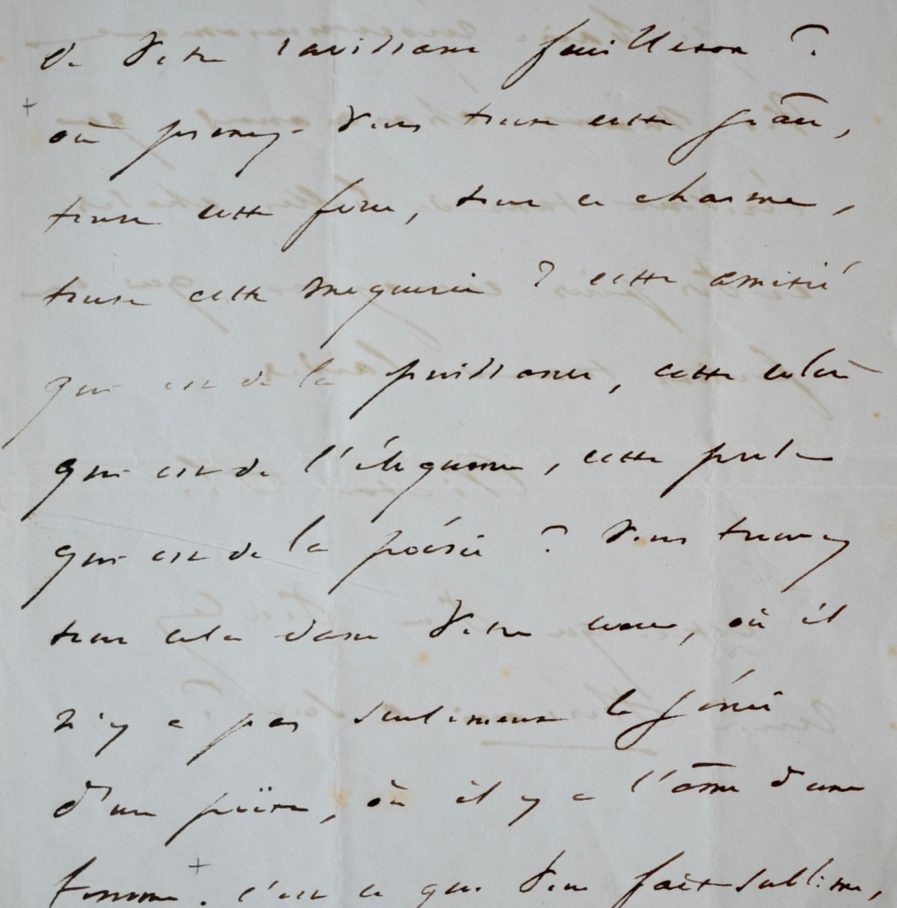 de votre ravissant feuilleton ?
où prenez-vous toute cette grâce,
toute cette force, tout ce charme,
toute cette moquerie ? cette amitié
qui est de la puissance, cette colère
qui est de l'éloquence, cette
qui est de la poésie ? Vous trouvez
tout cela dans votre cœur, où il
n'y a pas seulement le génie
d'un poëte, où il y a l'âme d'une
femme. c'est ce qui vous fait sublime,